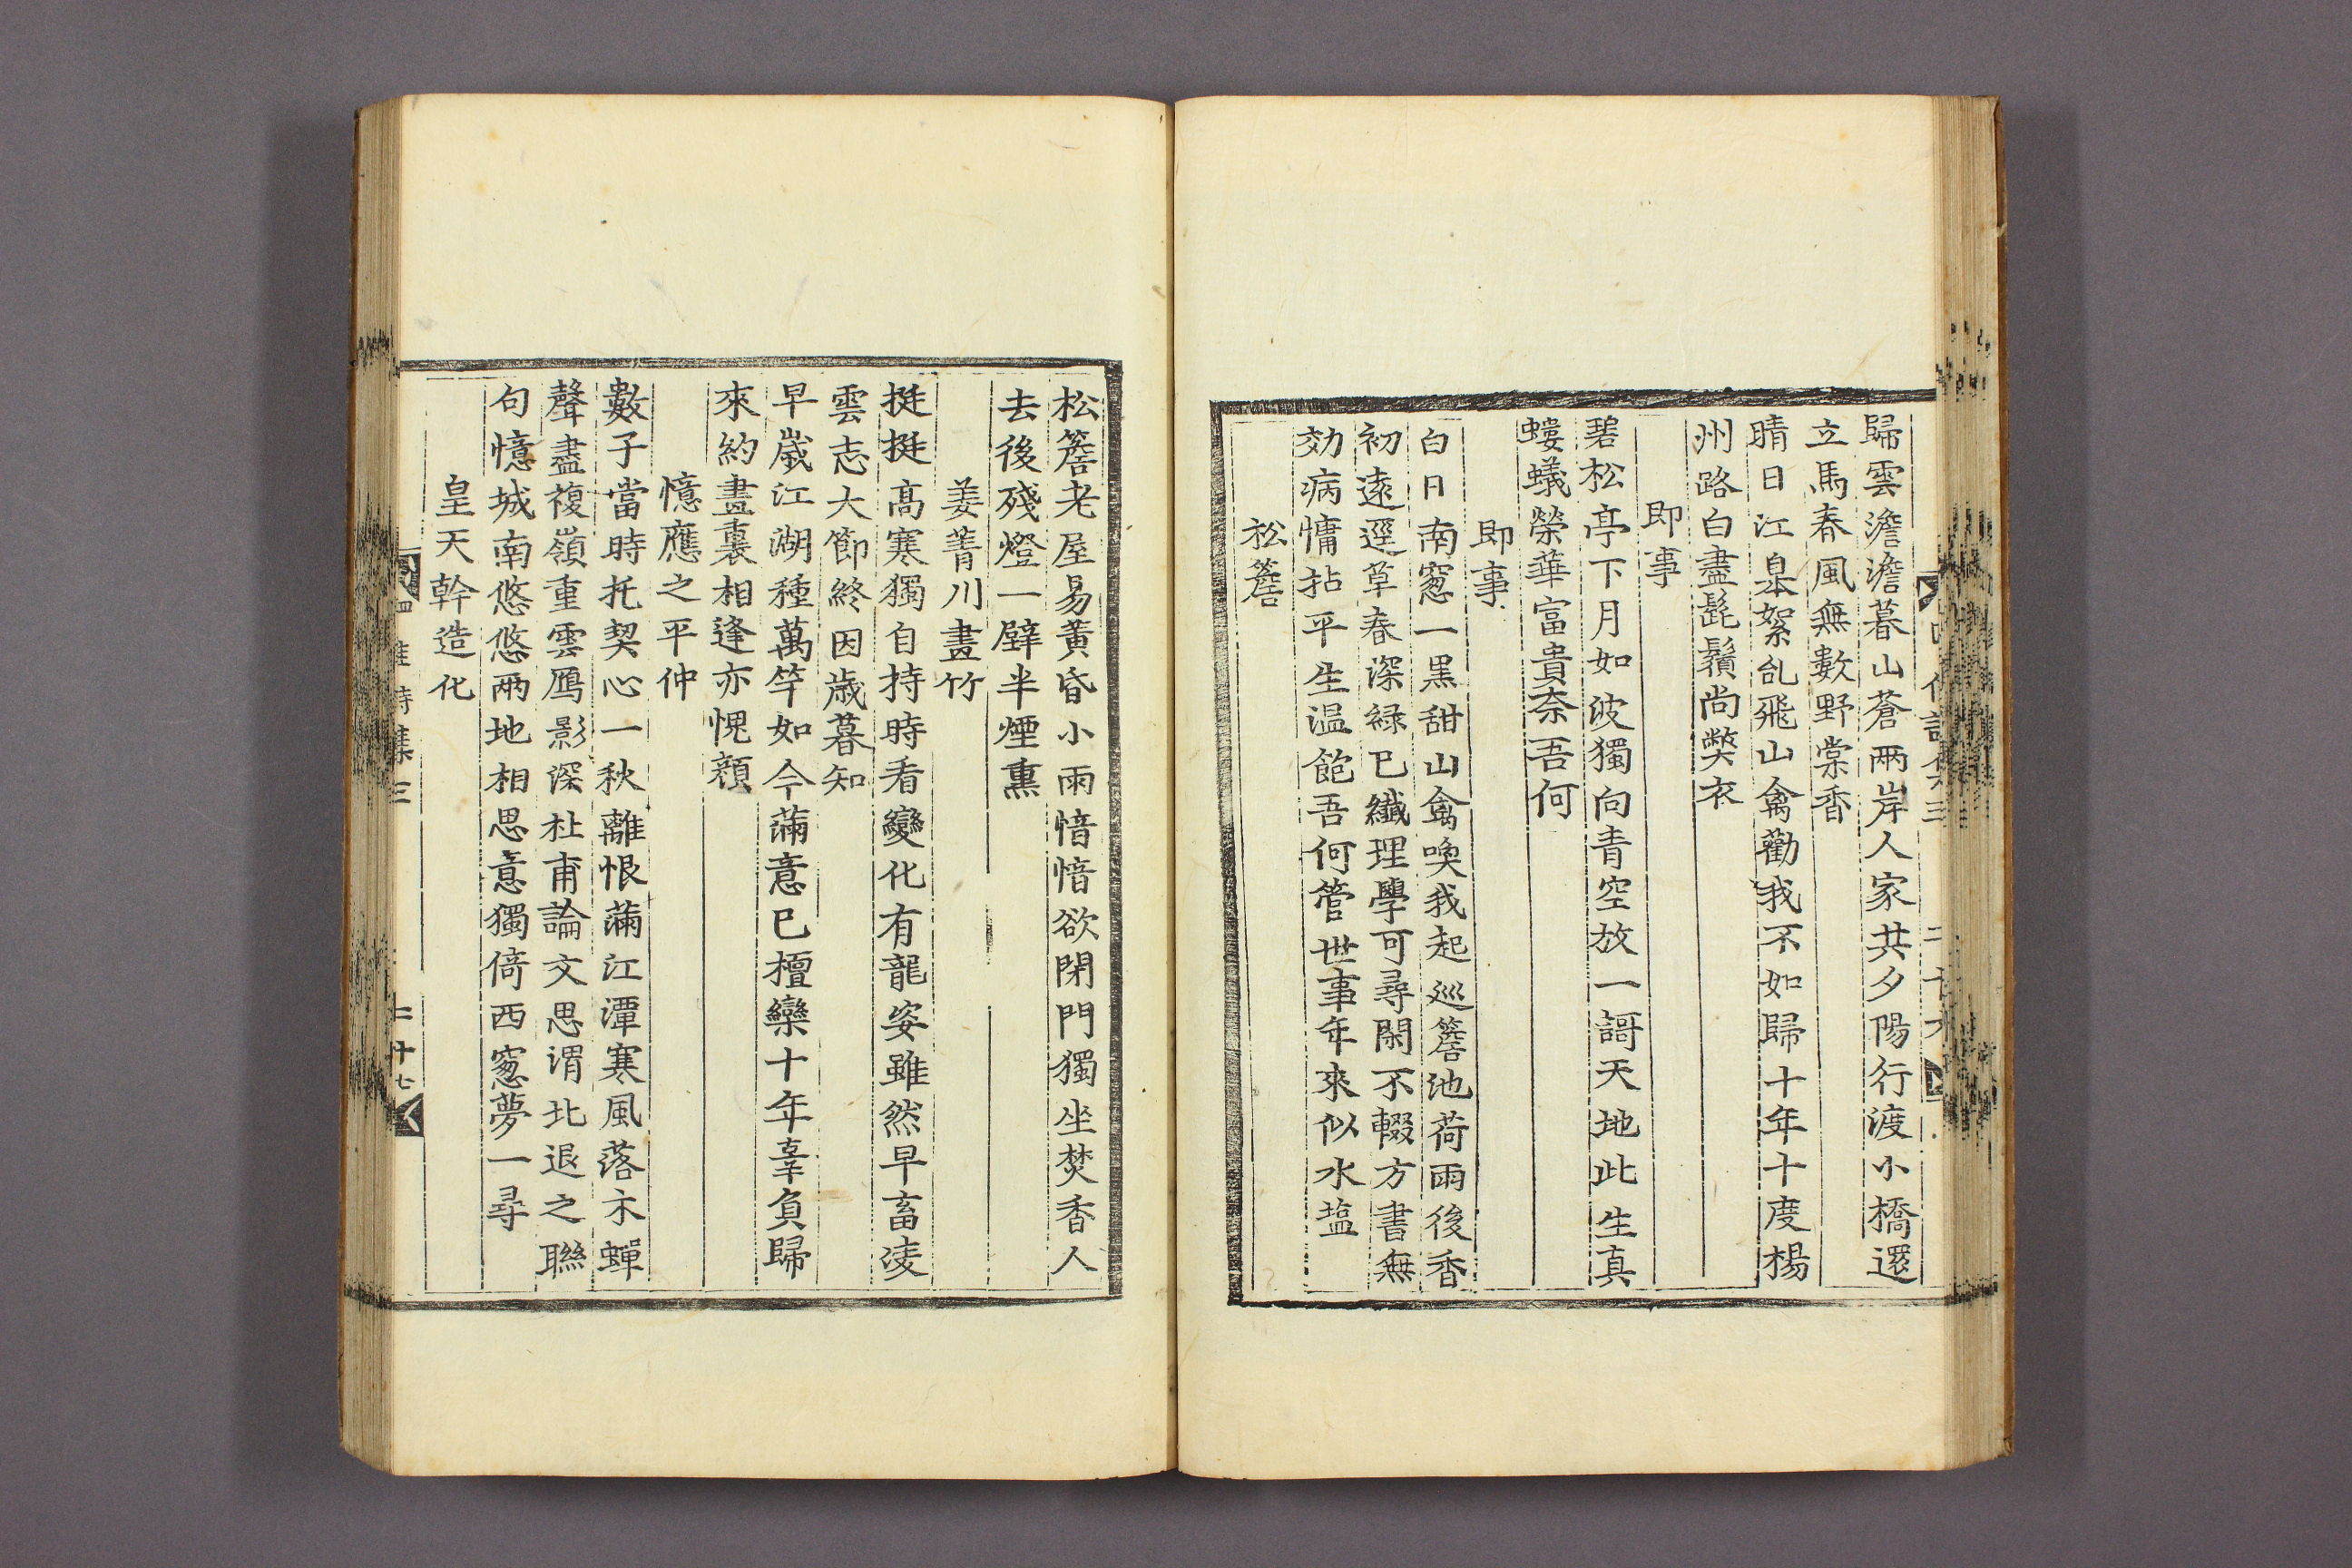 歸雲澹澹暮山蒼兩岸人家共夕陽行渡小橋還
立馬春風無數野棠香
晴日江皐絮乱飛山禽勸我不如歸十年十度楊
州路白盡髭鬚尚獘衣
即事
碧松亭下月如波獨向青空放一謌天地此生真
螻蟻榮華富貴奈吾何
即事
白日南窓一黑甜山禽喚我起巡簷池荷雨後香
初遠逕草春深緑已纖理學可尋閑不輟方書無
効病慵拈平生温飽吾何管世事年來似水塩
松簷
松簷老屋易黃昏小雨愔愔欲閉門獨坐焚香人
去後殘燈一壁半煙熏
姜菁川畫竹
挺挺高寒獨自持時看變化有龍姿雖然早畜凌
雲志大節終因歲暮知
早歲江湖種萬竿如今滿意已檀欒十年辜負歸
來約畫裏相逢亦愧顔
憶應之平仲
數子當時托契心一秋離恨滿江潭寒風落木蟬
聲盡複嶺重雲鴈影深杜甫論文思渭北退之聯
句憶城南悠悠兩地相思意獨倚西窓夢一尋
皇天幹造化
四佳詩集三
二十七